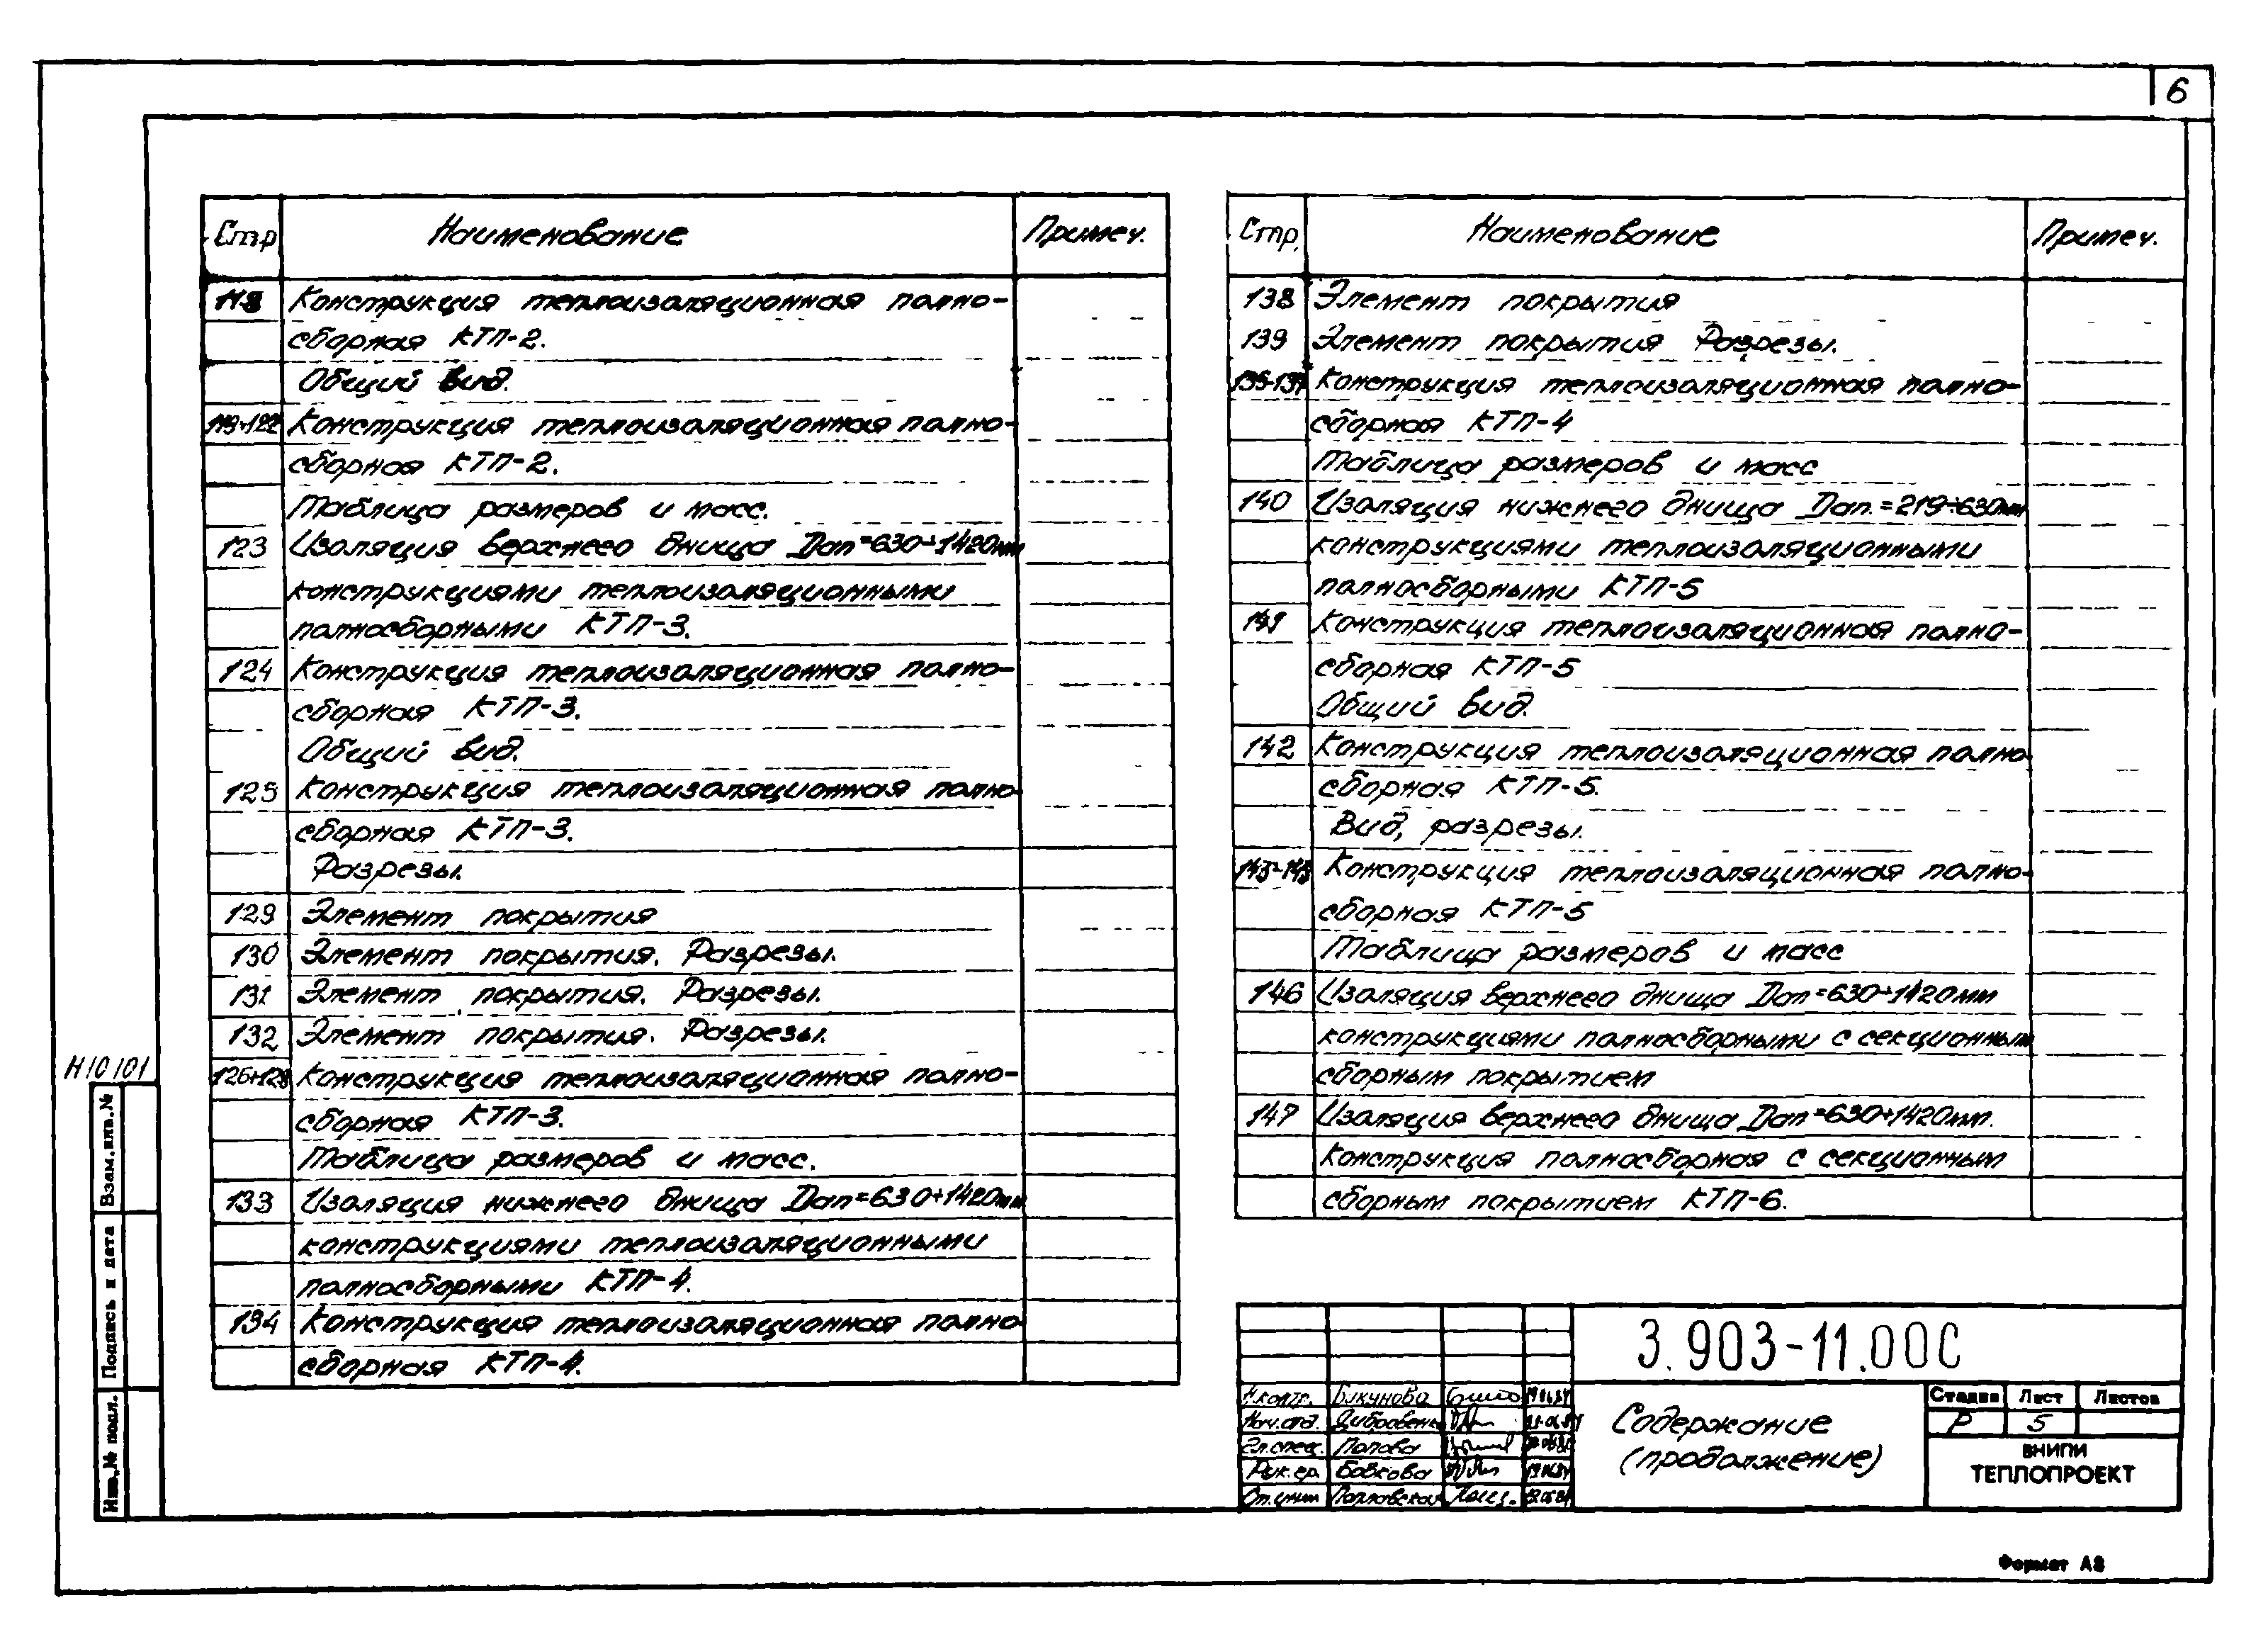 6
Стр. Наименование Примеч.
118 Конструкция теплоизоляционная полно-
сборная КТП-2.
Общий вид.
119÷122 Конструкция теплоизоляционная полно-
сборная КТП-2.
Таблица размеров и масс.
123 Изоляция верхнего днища Dап=630÷1420мм
конструкциями теплоизоляционными
полносборными КТП-3.
124 Конструкция теплоизоляционная полно-
сборная КТП-3.
Общий вид.
125 Конструкция теплоизоляционная полно-
сборная КТП-3.
Разрезы.
129 Элемент покрытия
130 Элемент покрытия. Разрезы.
131 Элемент покрытия. Разрезы.
132 Элемент покрытия. Разрезы.
126÷128 Конструкция теплоизоляционная полно-
сборная КТП-3.
Таблица размеров и масс.
133 Изоляция нижнего днища Dап=630÷1420мм
конструкциями теплоизоляционными
полносборными КТП-4.
134 Конструкция теплоизоляционная полно
сборная КТП-4.
Стр. Наименование Примеч.
138 Элемент покрытия
139 Элемент покрытия Разрезы.
135-137 Конструкция теплоизоляционная полно-
сборная КТП-4
Таблица размеров и масс
140 Изоляция нижнего днища Dап.=219÷630мм
конструкциями теплоизоляционными
полносборными КТП-5
141 Конструкция теплоизоляционная полно-
сборная КТП-5
Общий вид.
142 Конструкция теплоизоляционная полно
сборная КТП-5.
Вид, разрезы.
143-145 Конструкция теплоизоляционная полно-
сборная КТП-5
Таблица размеров и масс
146 Изоляция верхнего днища Dап=630÷1420мм
конструкциями полносборными с секционным
сборным покрытием
147 Изоляция верхнего днища Dап=630÷1420мм.
Конструкция полносборная с секционным
сборным покрытием КТП-6.
Н10101
Взам.инв.№
Подпись и дата
Инв.№ подл.
3.903-11.00С
Н.контр. Бикунова
Нач.отд.
Гл.спец. Попова
Рук.гр. Бовкова
Ст.инж
Содержание
(продолжение)
Стадия Лист Листов
Р 5
ВНИПИ
ТЕПЛОПРОЕКТ
Формат А3